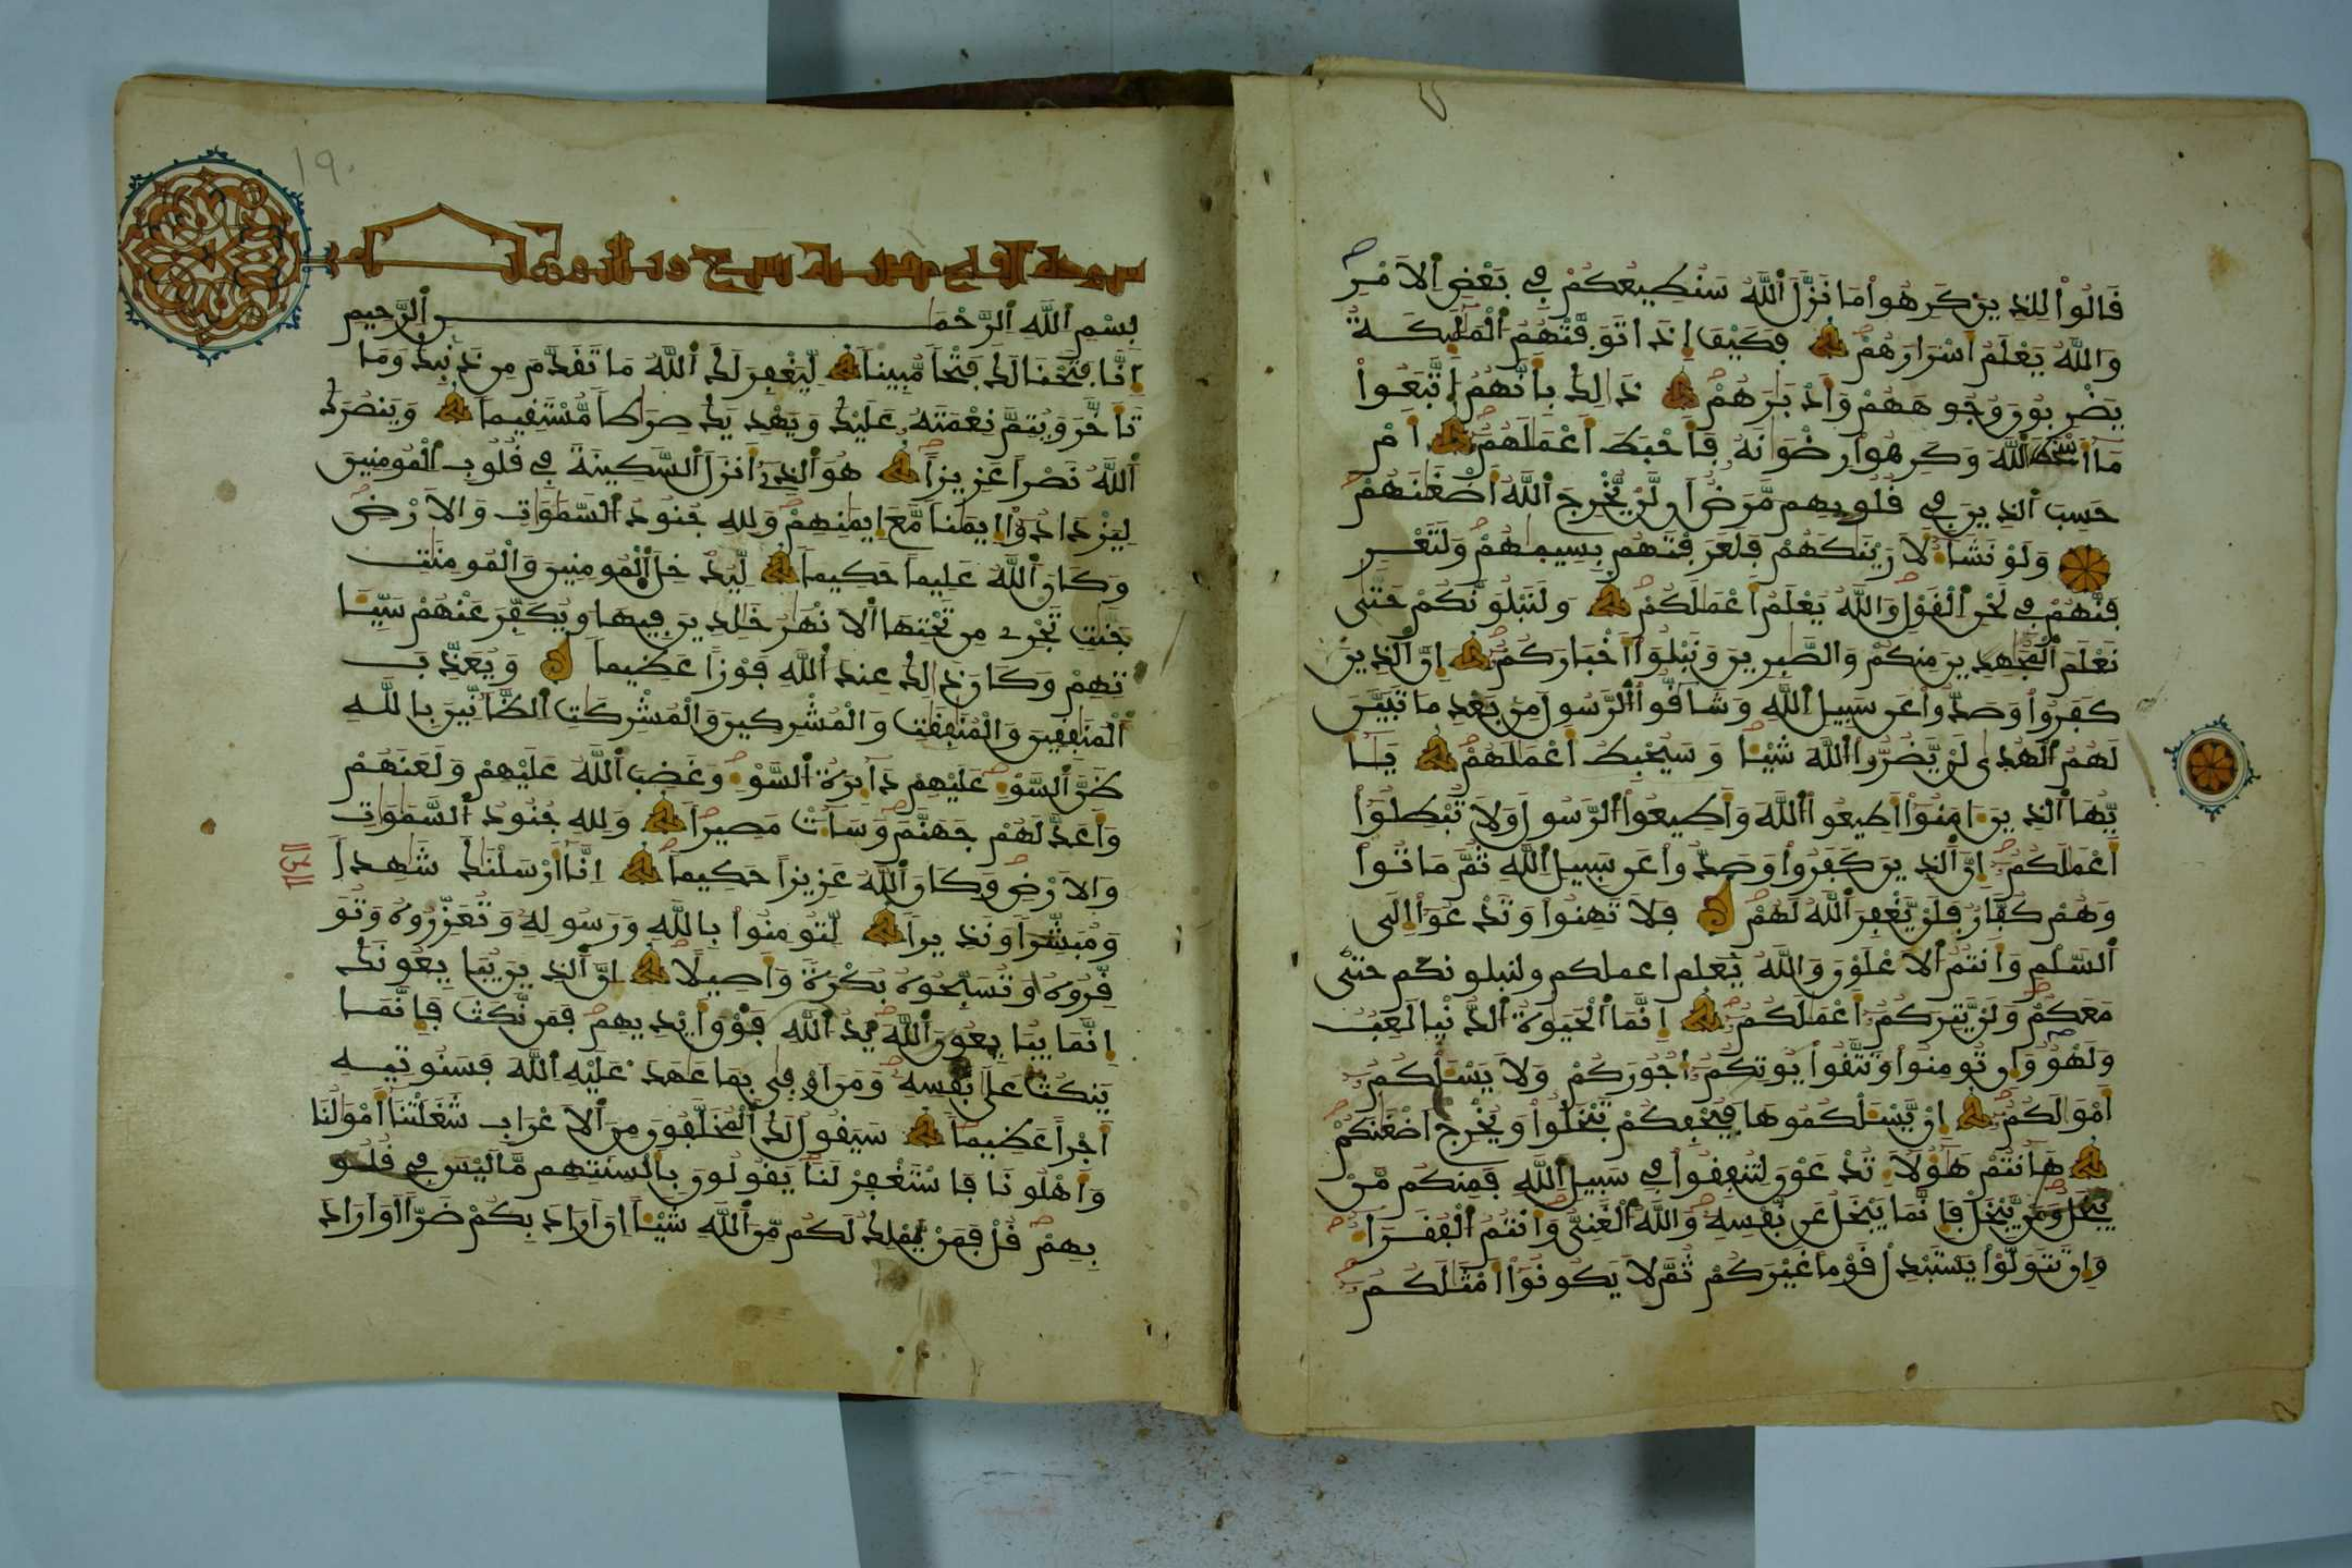 قَالُواْ لِلذِينَ كَرِهُواْ مَا نَزَّلَ ٱللَّهُ سَنُطِيعُكُمْ فِي بَعْضِ اِلَامْرِ
وَاللَّهُ يَعْلَمُ أَسْرَارَهُمْ فَكَيْفَ إِذَا تَوَفَّتْهُمُ الْمَلَٰئِكَةُ
يَضْرِبُونَ وُجُوهَهُمْ وَأَدْبَٰرَهُمْ ذَٰلِكَ بِأَنَّهُمُ اتَّبَعُواْ
مَا أَسْخَطَ اللَّهَ وَكَرِهُواْ رِضْوَٰنَهُ فَأَحْبَطَ أَعْمَٰلَهُمْ أَمْ
حَسِبَ ٱلذِينَ فِي قُلُوبِهِم مَّرَضٌ أَن لَّنْ يُّخْرِجَ ٱللَّهُ أَضْغَٰنَهُمْ
وَلَوْ نَشَآءُ لَأَرَيْنَٰكَهُمْ فَلَعَرَفْتَهُم بِسِيمَٰهُمْ وَلَتَعْرِ
فَنَّهُمْ فِي لَحْنِ اِلْقَوْلِ وَاللَّهُ يَعْلَمُ أَعْمَٰلَكُمْ وَلَنَبْلُوَنَّكُمْ حَتَّىٰ
نَعْلَمَ ٱلْمُجَٰهِدِينَ مِنكُمْ وَالصَّٰبِرِينَ وَنَبْلُوَاْ أَخْبَارَكُمْ إِنَّ ٱلذِينَ
كَفَرُواْ وَصَدُّواْ عَن سَبِيلِ اِللَّهِ وَشَآقُّواْ اُلرَّسُولَ مِنۢ بَعْدِ مَا تَبَيَّنَ
لَهُمُ ٱلْهُدَىٰ لَنْ يَّضُرُّواْ اُللَّهَ شَيْـٔاً وَسَيُحْبِطُ أَعْمَٰلَهُمْ يَٰأَ
يُّهَا ٱلذِينَ ءَامَنُواْ أَطِيعُواْ ٱللَّهَ وَأَطِيعُواْ ٱلرَّسُولَ وَلَا تُبْطِلُواْ
أَعْمَٰلَكُمُ إِنَّ ٱلذِينَ كَفَرُواْ وَصَدُّواْ عَن سَبِيلِ اِللَّهِ ثُمَّ مَاتُواْ
وَهُمْ كُفَّارٌ فَلَنْ يَّغْفِرَ ٱللَّهُ لَهُمْ فَلَا تَهِنُواْ وَتَدْعُواْ إِلَى
ٱلسَّلْمِ وَأَنتُمُ ٱلْأَعْلَوْنَ وَاللَّهُ يَعْلَم اعملكم ولنبلونكم حتى
مَعَكُمْ وَلَنْ يَّتِرَكُمُ أَعْمَٰلَكُمُ إِنَّمَا ٱلْحَيَوٰةُ ٱلدُّنْيَا لَعِبٌ
وَلَهْوٌ وَإِن تُومِنُواْ وَتَتَّقُواْ يُوتِكُمُ أُجُورَكُمْ وَلَا يَسْـَٔلْكُمُ
أَمْوَٰلَكُمُ إِنْ يَّسْـَٔلْكُمُوهَا فَيُحْفِكُمْ تَبْخَلُواْ وَيُخْرِجَ أَضْغَٰنَكُمْ
هَٰأَنتُمْ هَٰؤُلَآءِ تُدْعَوْنَ لِتُنفِقُواْ فِي سَبِيلِ اِللَّهِ فَمِنكُم مَّنْ
يَّبْخَلُ وَمَنْ يَّبْخَلْ فَإِنَّمَا يَبْخَلُ عَن نَّفْسِهِ وَاللَّهُ ٱلْغَنِيُّ وَأَنتُمُ ٱلْفُقَرَآءُ
وَإِن تَتَوَلَّوْاْ يَسْتَبْدِلْ قَوْماً غَيْرَكُمْ ثُمَّ لَا يَكُونُواْ أَمْثَٰلَكُمُ
19.
بِسْمِ اللَّهِ الرَّحْمَٰنِ الرَّحِيمِ
إِنَّا فَتَحْنَا لَكَ فَتْحاً مُّبِيناً لِّيَغْفِرَ لَكَ ٱللَّهُ مَا تَقَدَّمَ مِن ذَنۢبِكَ وَمَا
تَأَخَّرَ وَيُتِمَّ نِعْمَتَهُ عَلَيْكَ وَيَهْدِيَكَ صِرَٰطاً مُّسْتَقِيماً وَيَنصُرَكَ
ٱللَّهُ نَصْراً عَزِيزاً هُوَ ٱلذِي أَنزَلَ ٱلسَّكِينَةَ فِي قُلُوبِ اِلْمُومِنِينَ
لِيَزْدَادُواْ إِيمَٰناً مَّعَ إِيمَٰنِهِمْ وَلِلهِ جُنُودُ ٱلسَّمَٰوَٰتِ وَالْأَرْضِ
وَكَانَ ٱللَّهُ عَلِيماً حَكِيماً لِّيُدْخِلَ ٱلْمُومِنِينَ وَالْمُومِنَٰتِ
جَنَّٰتٍ تَجْرِي مِن تَحْتِهَا ٱلْأَنْهَٰرُ خَٰلِدِينَ فِيهَا وَيُكَفِّرَ عَنْهُمْ سَيِّـَٔا
تِهِمْ وَكَانَ ذَٰلِكَ عِندَ ٱللَّهِ فَوْزاً عَظِيماً وَيُعَذِّبَ
ٱلْمُنَٰفِقِينَ وَالْمُنَٰفِقَٰتِ وَالْمُشْرِكِينَ وَالْمُشْرِكَٰتِ اِلظَّآنِّينَ بِاللَّهِ
ظَنَّ ٱلسَّوْءِ عَلَيْهِمْ دَآئِرَةُ ٱلسَّوْءِ وَغَضِبَ ٱللَّهُ عَلَيْهِمْ وَلَعَنَهُمْ
وَأَعَدَّ لَهُمْ جَهَنَّمَ وَسَآءَتْ مَصِيراً وَلِلهِ جُنُودُ ٱلسَّمَٰوَٰتِ
وَالْأَرْضِ وَكَانَ ٱللَّهُ عَزِيزاً حَكِيماً إِنَّا أَرْسَلْنَٰكَ شَٰهِداً
وَمُبَشِّراً وَنَذِيراً لِّتُومِنُواْ بِاللَّهِ وَرَسُولِهِ وَتُعَزِّرُوهُ وَتُوَ
قِّرُوهُ وَتُسَبِّحُوهُ بُكْرَةً وَأَصِيلًا إِنَّ ٱلذِينَ يُبَايِعُونَكَ
إِنَّمَا يُبَايِعُونَ ٱللَّهَ يَدُ ٱللَّهِ فَوْقَ أَيْدِيهِمْ فَمَن نَّكَثَ فَإِنَّمَا
يَنكُثُ عَلَىٰ نَفْسِهِ وَمَنَ اَوْفَىٰ بِمَا عَٰهَدَ عَلَيْهِ ٱللَّهَ فَسَنُوتِيهِ
أَجْراً عَظِيماً سَيَقُولُ لَكَ ٱلْمُخَلَّفُونَ مِنَ ٱلْأَعْرَابِ شَغَلَتْنَا أَمْوَٰلُنَا
وَأَهْلُونَا فَاسْتَغْفِرْ لَنَا يَقُولُونَ بِأَلْسِنَتِهِم مَّا لَيْسَ فِي قُلُو
بِهِمْ قُلْ فَمَنْ يَّمْلِكُ لَكُم مِّنَ ٱللَّهِ شَيْـٔاً إِنَ اَرَادَ بِكُمْ ضَرّاً أَوَ اَرَادَ